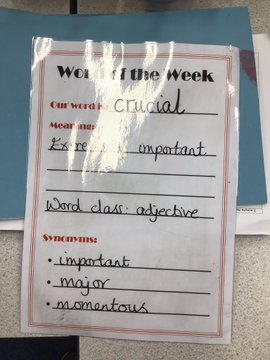 Word of the Week
Our word is: crucial
Meaning:
Extremely important
Word class: adjective
Synonyms:
• important
• major
• momentous